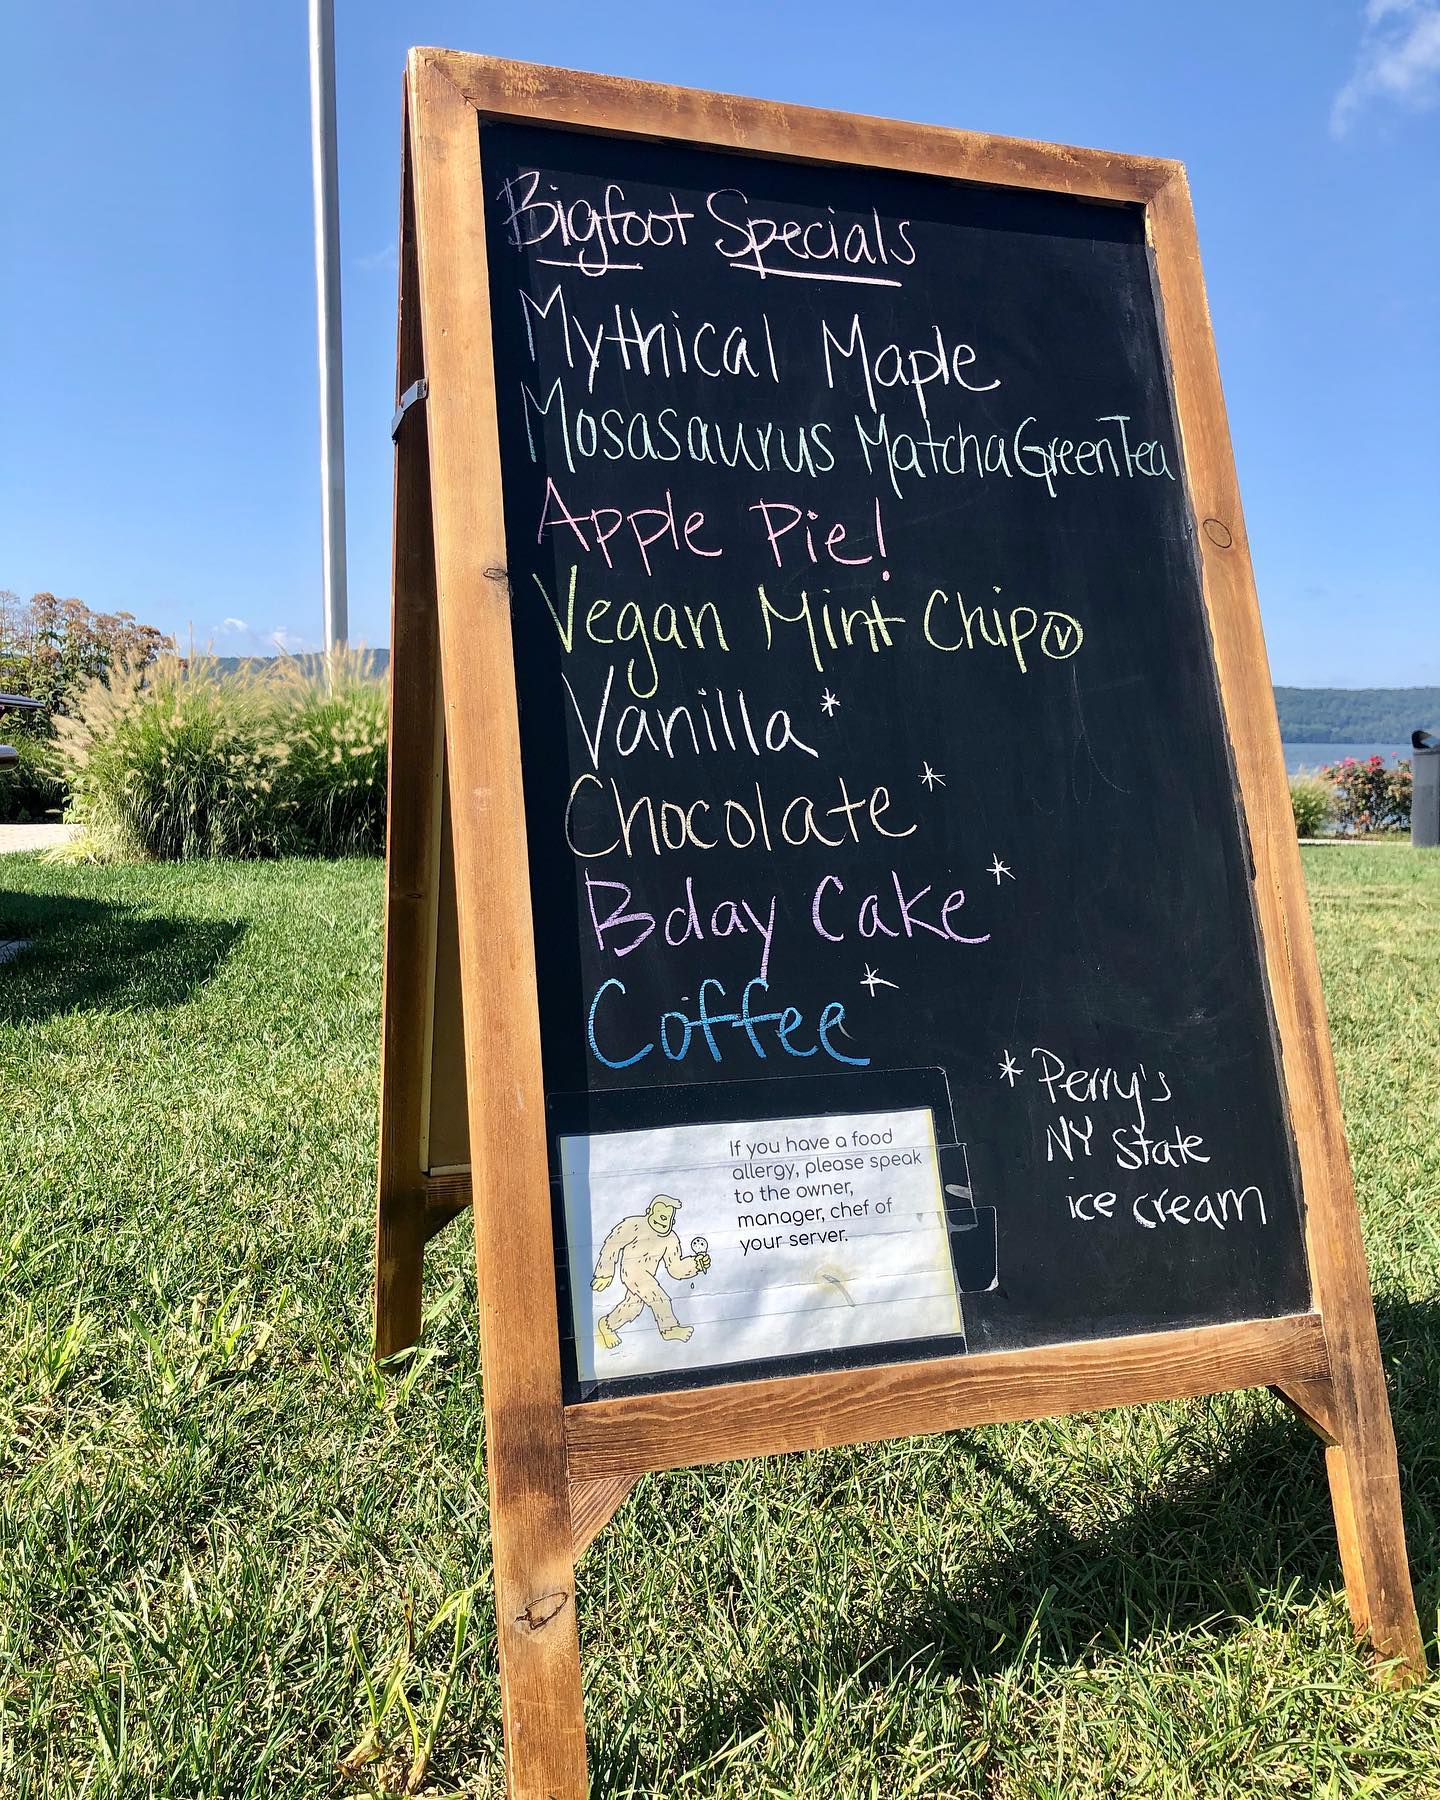 Bigfoot Specials
Mythical Maple
Mosasaurus Matcha Green Tea
Apple Pie!
Vegan Mint Chip Ⓥ
Vanilla *
Chocolate *
Bday Cake *
Coffee *
* Perry's
NY State
ice cream
If you have a food
allergy, please speak
to the owner,
manager, chef of
your server.